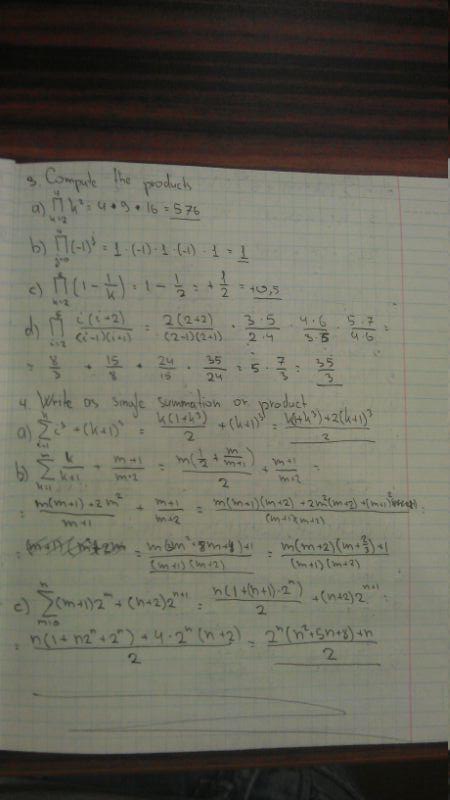 3. Compute the products
a) ∏_{k=2}^{4} k² = 4 * 9 * 16 = 576
b) ∏_{j=0}^{4} (-1)^j = 1 · (-1) · 1 · (-1) · 1 = 1
c) ∏_{k=2}^{2} (1 - 1/k) = 1 - 1/2 = + 1/2 = +0,5
d) ∏_{i=2}^{5} i(i+2)/((i-1)(i+1)) = 2(2+2)/((2-1)(2+1)) · 3·5/2·4 · 4·6/3·5 · 5·7/4·6 =
= 8/3 * 15/8 * 24/15 * 35/24 = 5 · 7/3 = 35/3
4. Write as single summation or product
a) ∑_{i=1}^{k} i³ + (k+1)³ = k(1+k³)/2 + (k+1)³ = k(1+k³)+2(k+1)³/2
b) ∑_{k=1}^{m} k/(k+1) + (m+1)/(m+2) = m(1/2 + m/(m+1))/2 + (m+1)/(m+2) =
= (m(m+1)+2m²)/(m+1) + (m+1)/(m+2) = (m(m+1)(m+2)+2m²(m+2)+(m+1)²)/((m+1)(m+2)) =
= m(3m²+8m+4)+1/((m+1)(m+2)) = m(m+2)(m+2/3)+1/((m+1)(m+2))
c) ∑_{m=0}^{n} (m+1)2^m + (n+2)2^{n+1} = n(1+(n+1)·2^n)/2 + (n+2)2^{n+1} =
= n(1+n2^n+2^n)+4·2^n(n+2)/2 = 2^n(n²+5n+8)+n/2